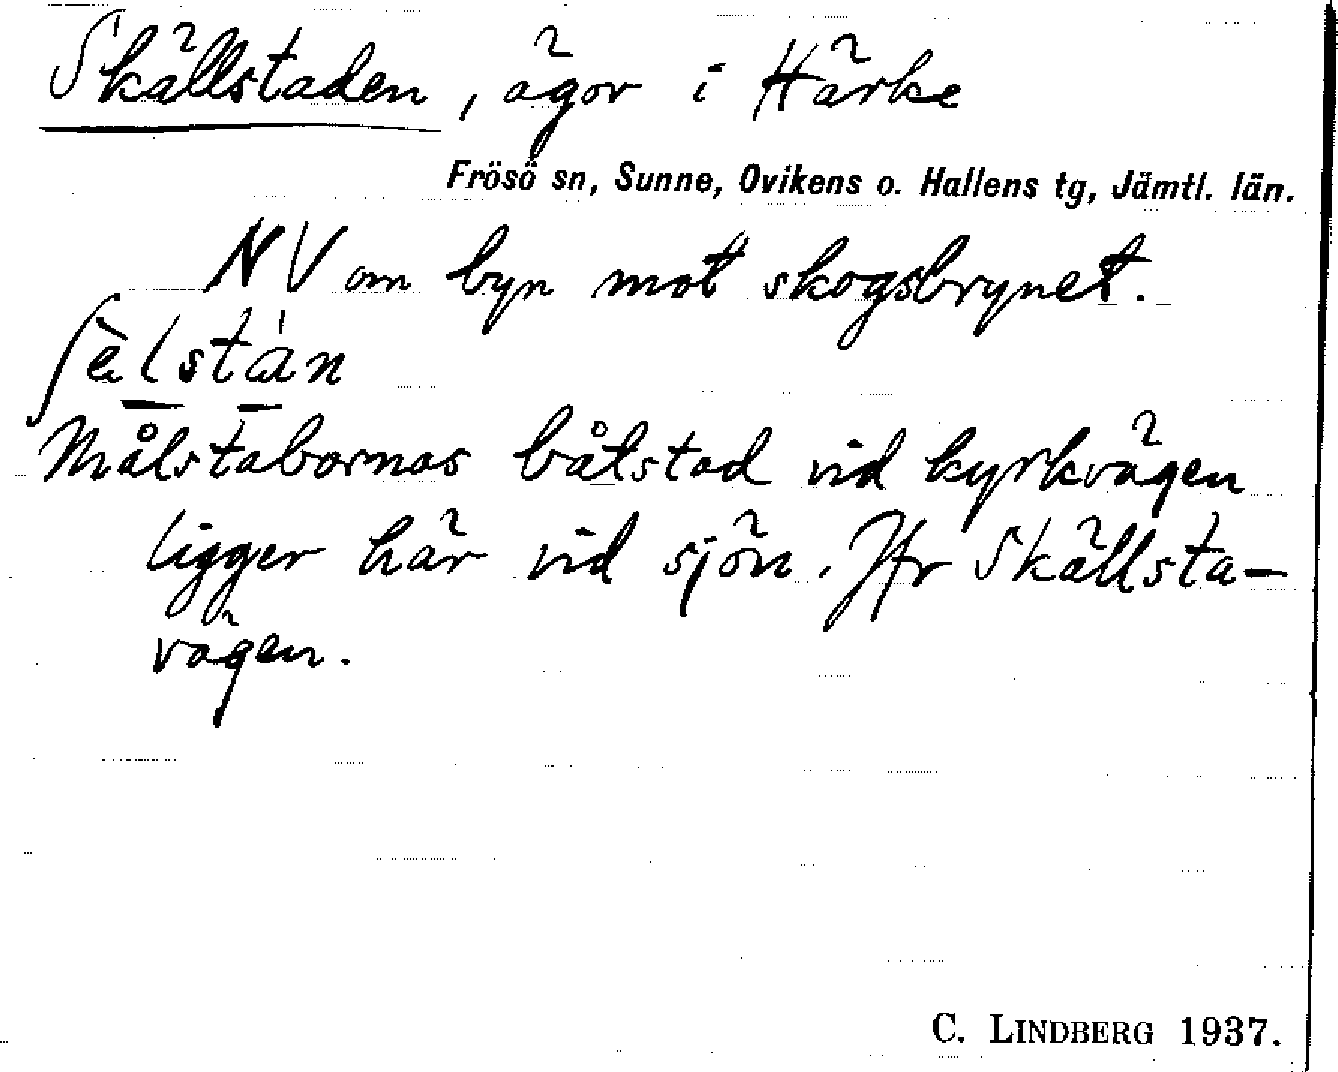 Skällstaden, ägor i Härke
Frösö sn, Sunne, Ovikens o. Hallens tg, Jämtl. län.
NV om byn mot skogsbrynet.
ʃèlstán
Målstabornas båtstad vid kyrkvägen
ligger här vid sjön. Jfr Skällsta-
vägen.
C. LINDBERG 1937.